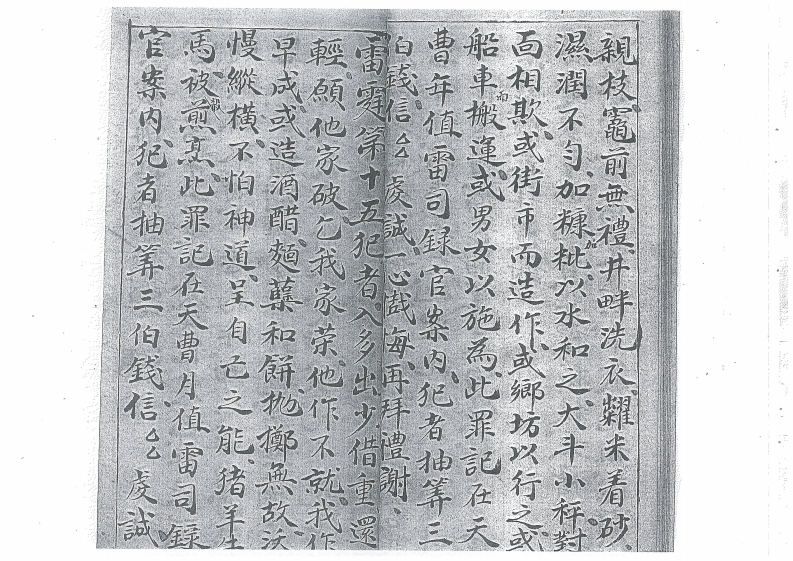 親枝、竈前無禮、井畔洗衣、糶米着砂、
濕潤不勻、加糠粃以水和之、大斗小秤、對
面相欺、或街市而造作、或鄉坊以行之、或
船車而搬運、或男女以施為、此罪記在天
曹年值雷司録官案内、犯者抽筭三
伯錢、信厶厶虔誠、一心懴悔、再拜禮謝、
雷霹第十五、犯者入多出少、借重還
輕、願他家破、乞我家荣、他作不就、我作
早成、或造酒醋麵蘗和餅、抛擲無故、
慢縱橫、不怕神道、呈自己之能、猪羊牛
馬、被煎烹、此罪記在天曹月值雷司録
官案内、犯者抽筭三伯錢、信厶厶虔誠